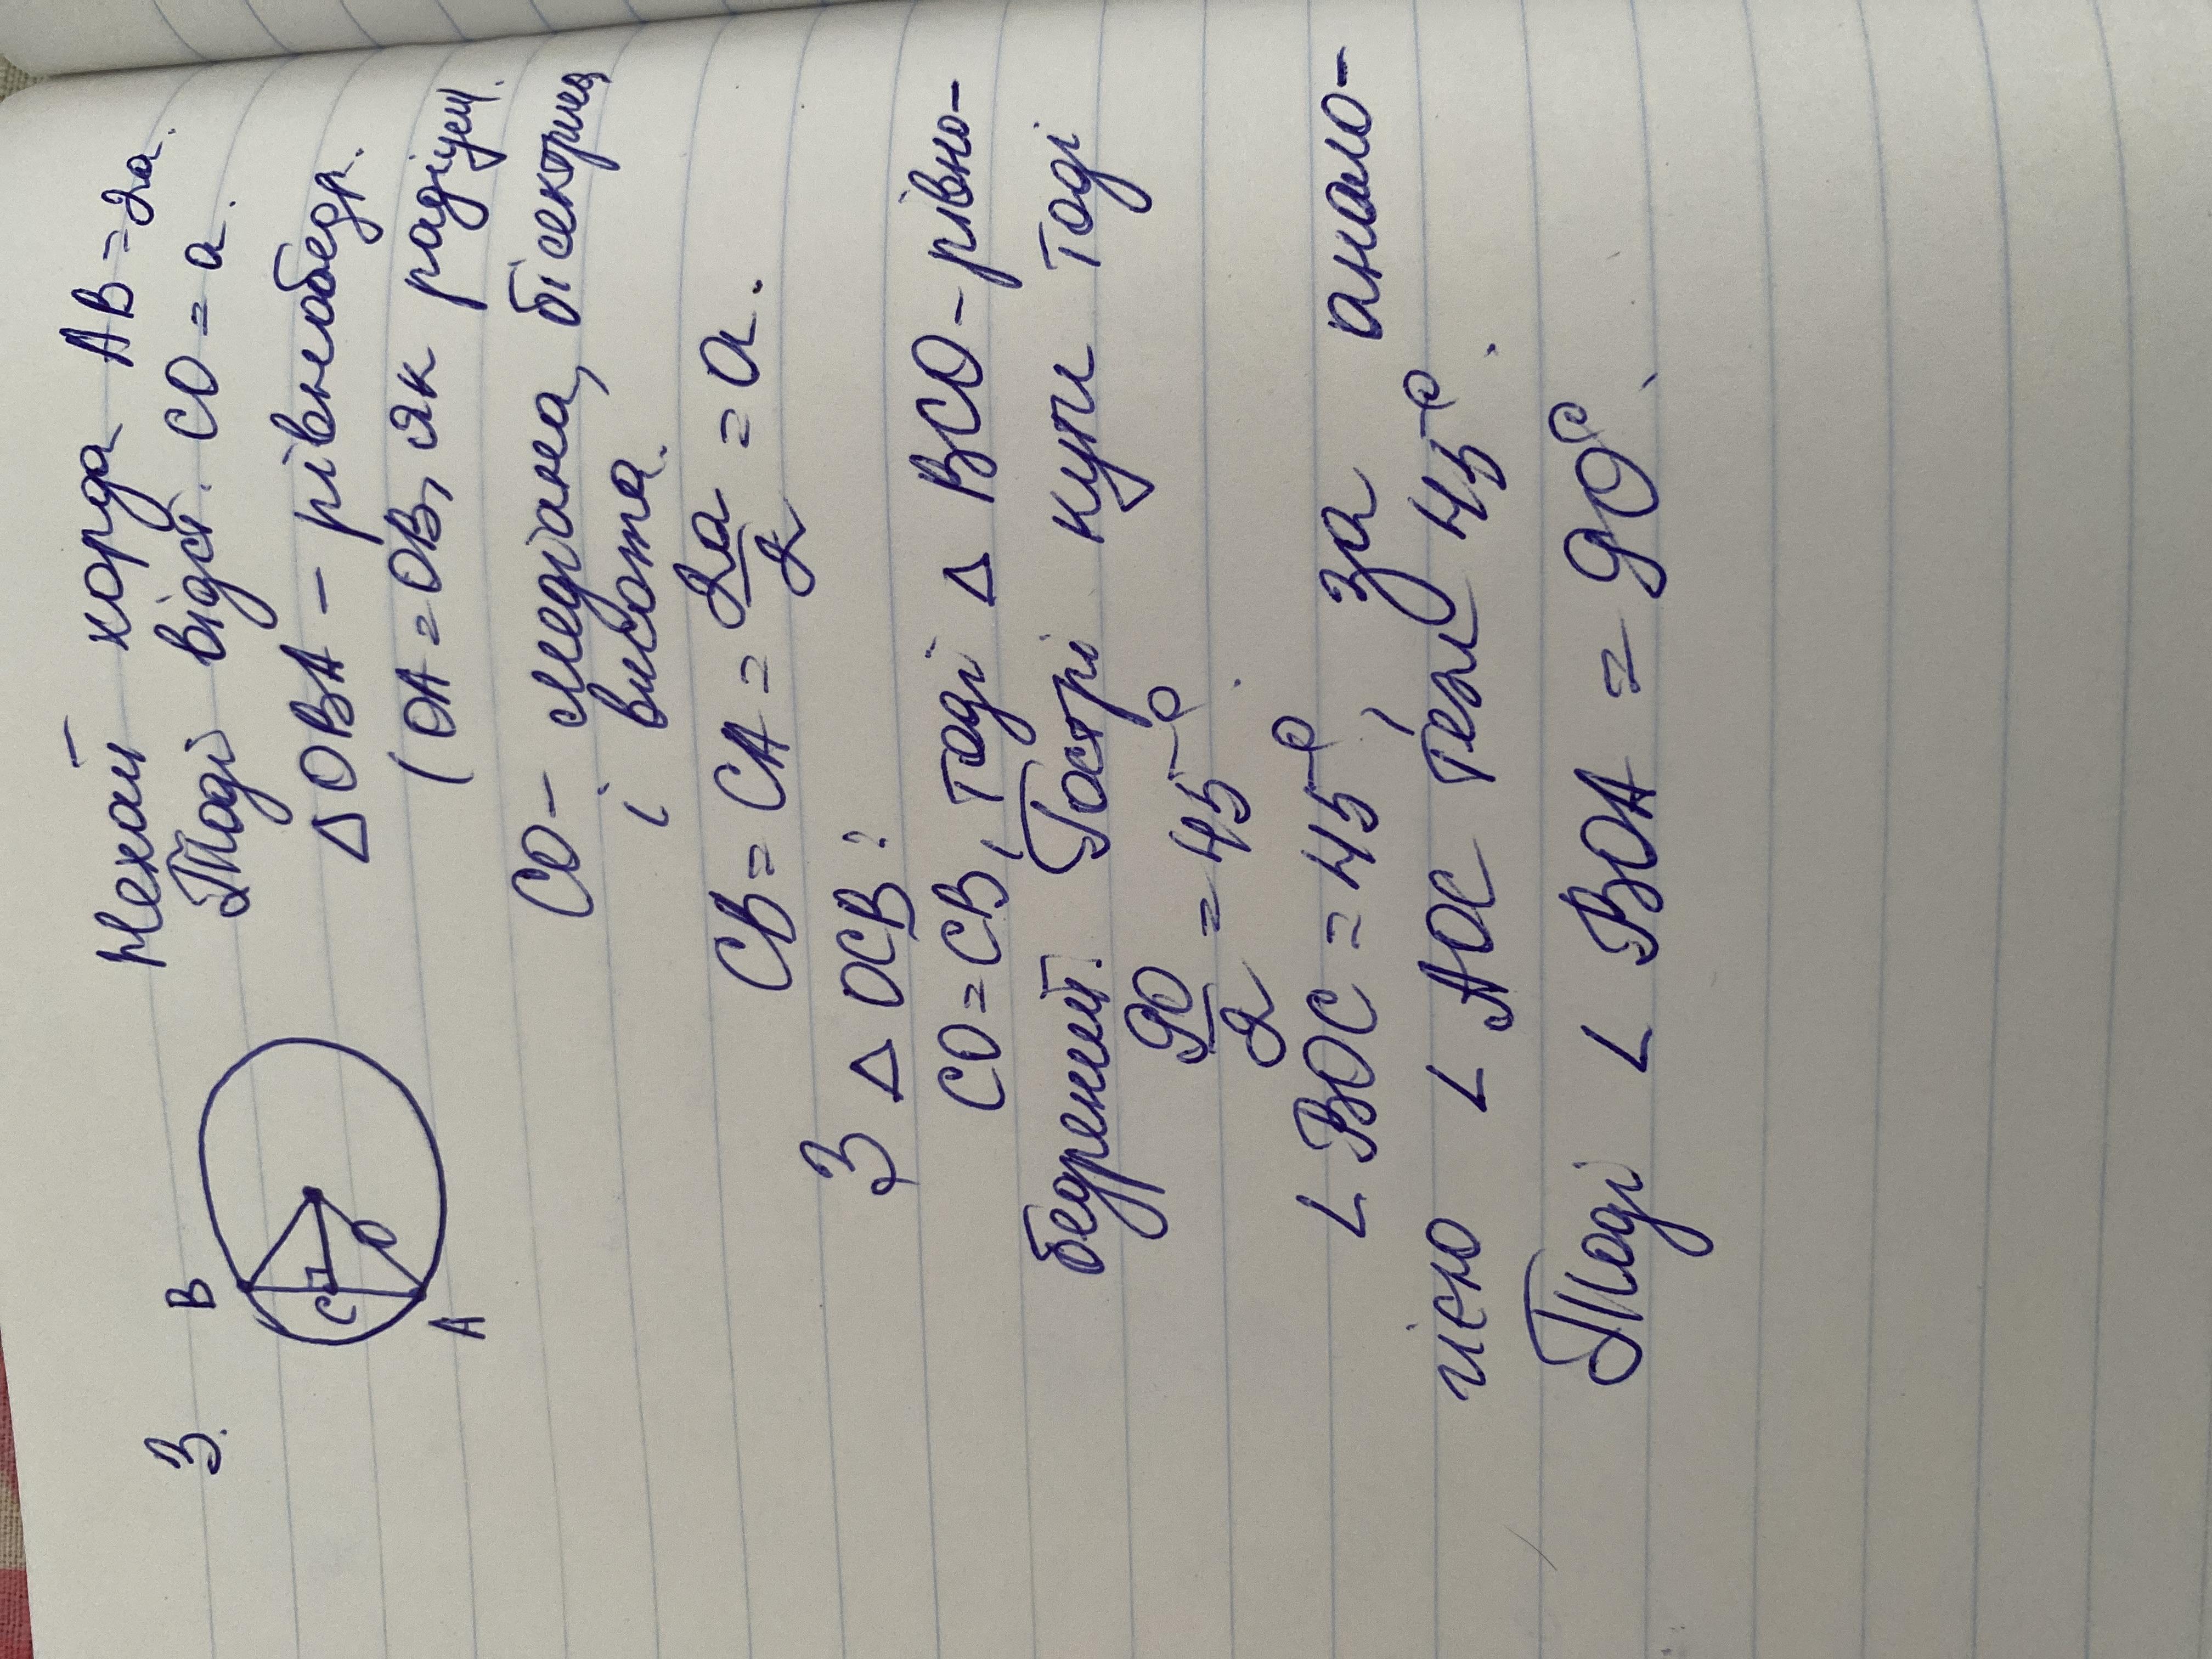 3.
B
C
O
A
Нехай хорда AB = 2a.
Тоді відст. CO = a.
△OBA – рівнобедр.
(OA = OB, як радіуси).
CO – медіана, бісектриса
і висота.
CB = CA = 2a/2 = a.
З △OCB:
CO = CB, Тоді △ BCO – рівно-
бедрений. Гострі кути Тоді
90/2 = 45°.
∠BOC = 45°, за анало-
гією ∠AOC теж 45°.
Тоді ∠BOA = 90°.